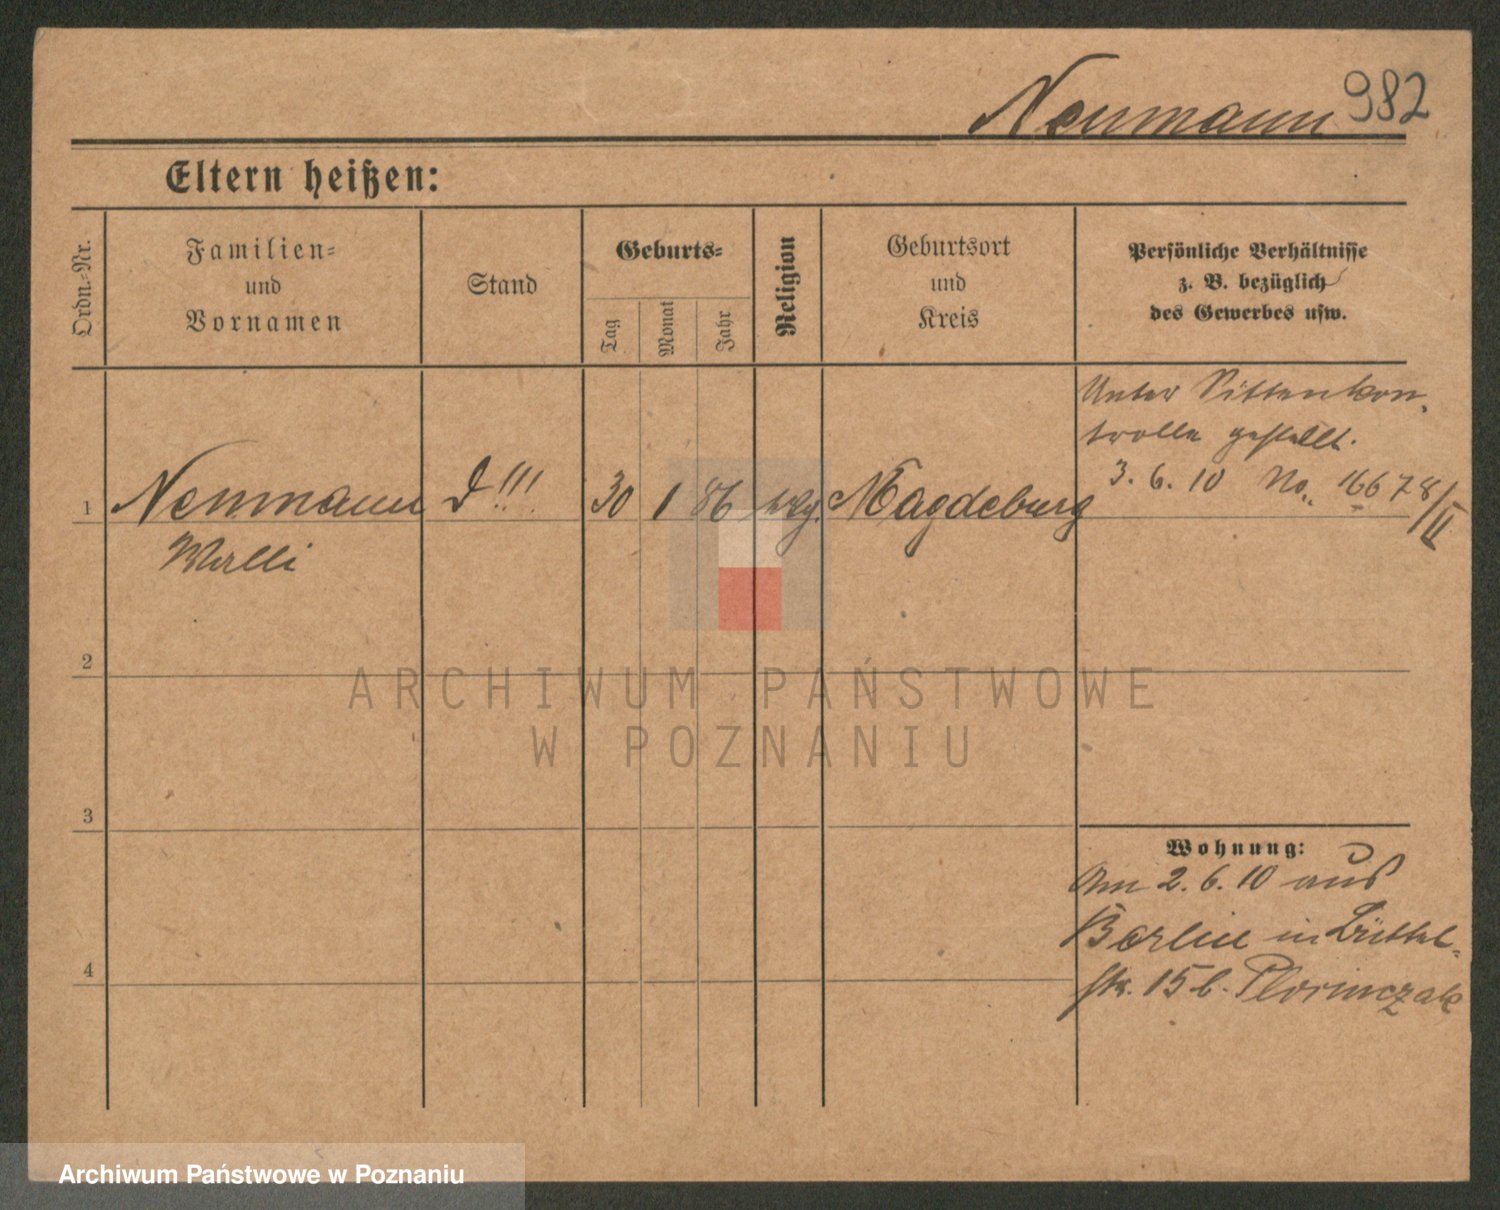 Neumann 982
Eltern heißen:
Ordn.-Nr.
Familien-
und
Vornamen
Stand
Geburts-
Tag
Monat
Jahr
Religion
Geburtsort
und
Kreis
Persönliche Verhältnisse
z. B. bezüglich
des Gewerbes usw.
Unter Sittenkon-
trolle gestellt.
3. 6. 10 No. 16678/II
1 Neumann D!!! 30 1 86 Magdeburg
Walli
2
3
4
Wohnung:
Am 2. 6. 10 aus
Berlin in Büttel-
str. 15 b. Plorinczak
ARCHIWUM PAŃSTWOWE
W POZNANIU
Archiwum Państwowe w Poznaniu